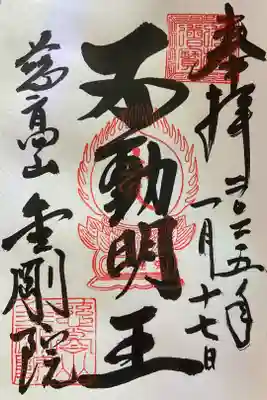 奉拝
二〇二五年
一月十七日
不動明王
慈高山
金剛院